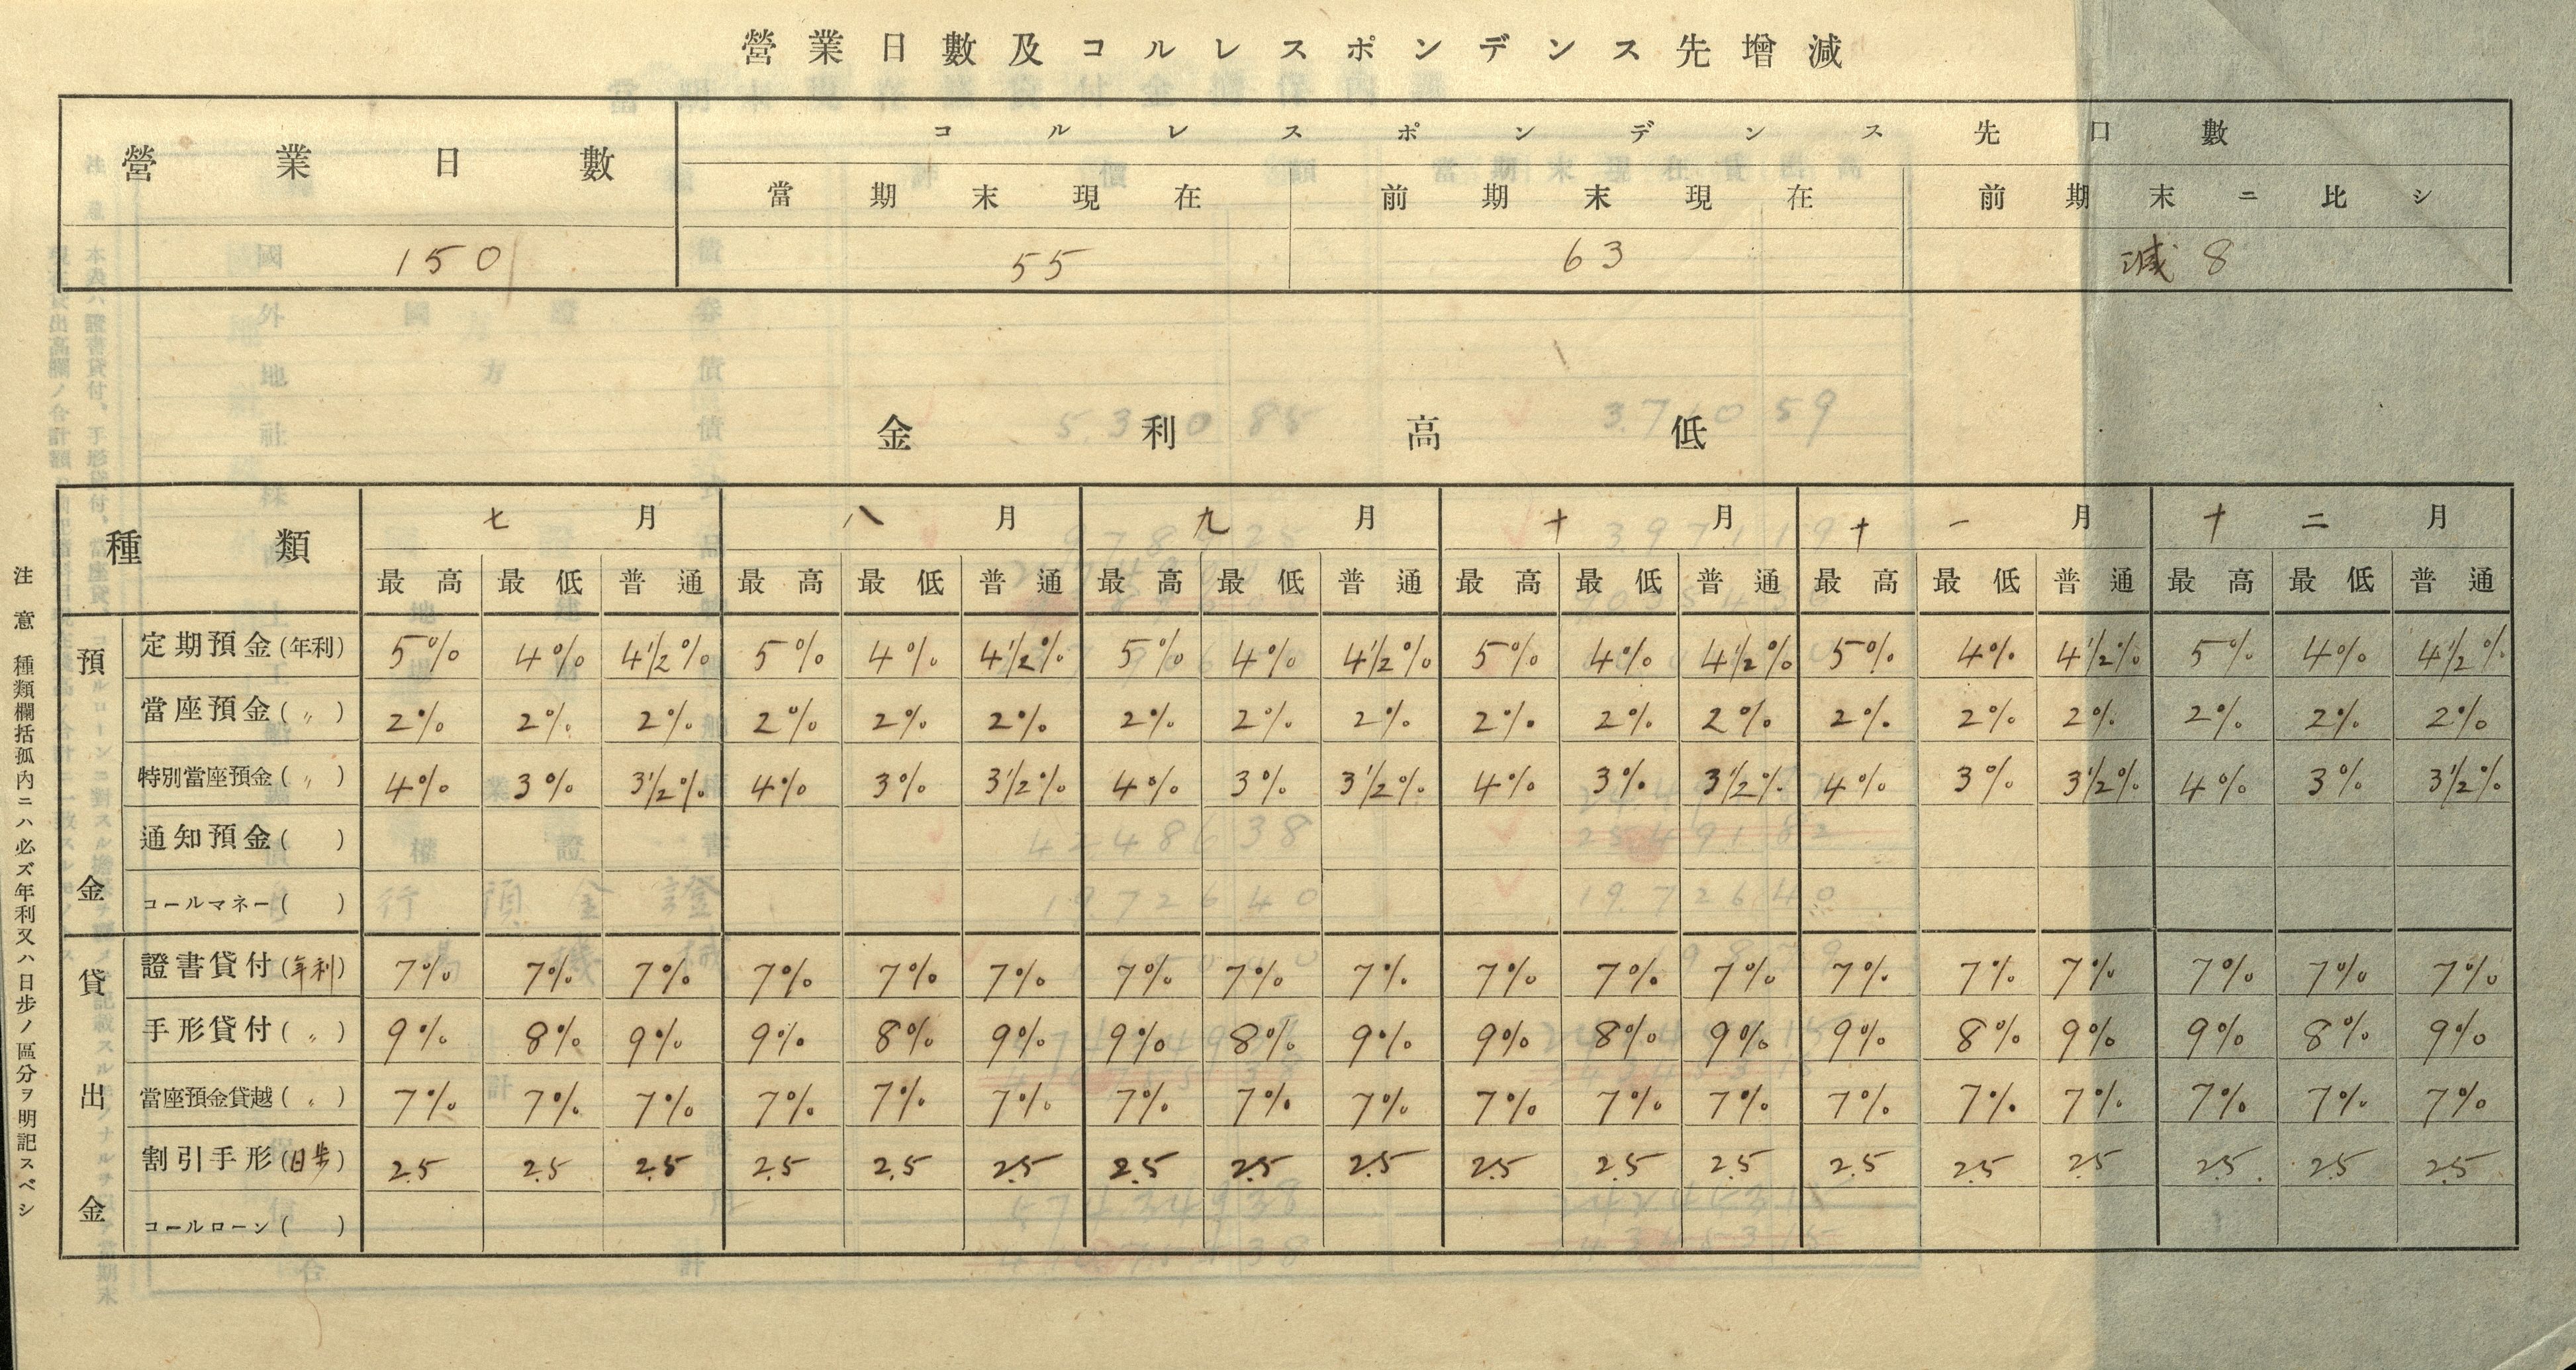 營業日數及コルレスポンデンス先增減
營業日數 コルレスポンデンス先口數
當期末現在 前期末現在 前期末ニ比シ
150 55 63 減 8
金利高低
種類 七月 八月 九月 十月 十一月 十二月
最高 最低 普通 最高 最低 普通 最高 最低 普通 最高 最低 普通 最高 最低 普通 最高 最低 普通
預金
定期預金(年利) 5% 4% 4½% 5% 4% 4½% 5% 4% 4½% 5% 4% 4½% 5% 4% 4½% 5% 4% 4½%
當座預金(〃) 2% 2% 2% 2% 2% 2% 2% 2% 2% 2% 2% 2% 2% 2% 2% 2% 2% 2%
特別當座預金(〃) 4% 3% 3½% 4% 3% 3½% 4% 3% 3½% 4% 3% 3½% 4% 3% 3½% 4% 3% 3½%
通知預金( )
コールマネー( )
貸出金
證書貸付(年利) 7% 7% 7% 7% 7% 7% 7% 7% 7% 7% 7% 7% 7% 7% 7% 7% 7% 7%
手形貸付(〃) 9% 8% 9% 9% 8% 9% 9% 8% 9% 9% 8% 9% 9% 8% 9% 9% 8% 9%
當座預金貸越(〃) 7% 7% 7% 7% 7% 7% 7% 7% 7% 7% 7% 7% 7% 7% 7% 7% 7% 7%
割引手形(日歩) 2.5 2.5 2.5 2.5 2.5 2.5 2.5 2.5 2.5 2.5 2.5 2.5 2.5 2.5 2.5 2.5 2.5 2.5
コールローン( )
注意 種類欄括孤內ニハ必ズ年利又ハ日步ノ區分ヲ明記スベシ